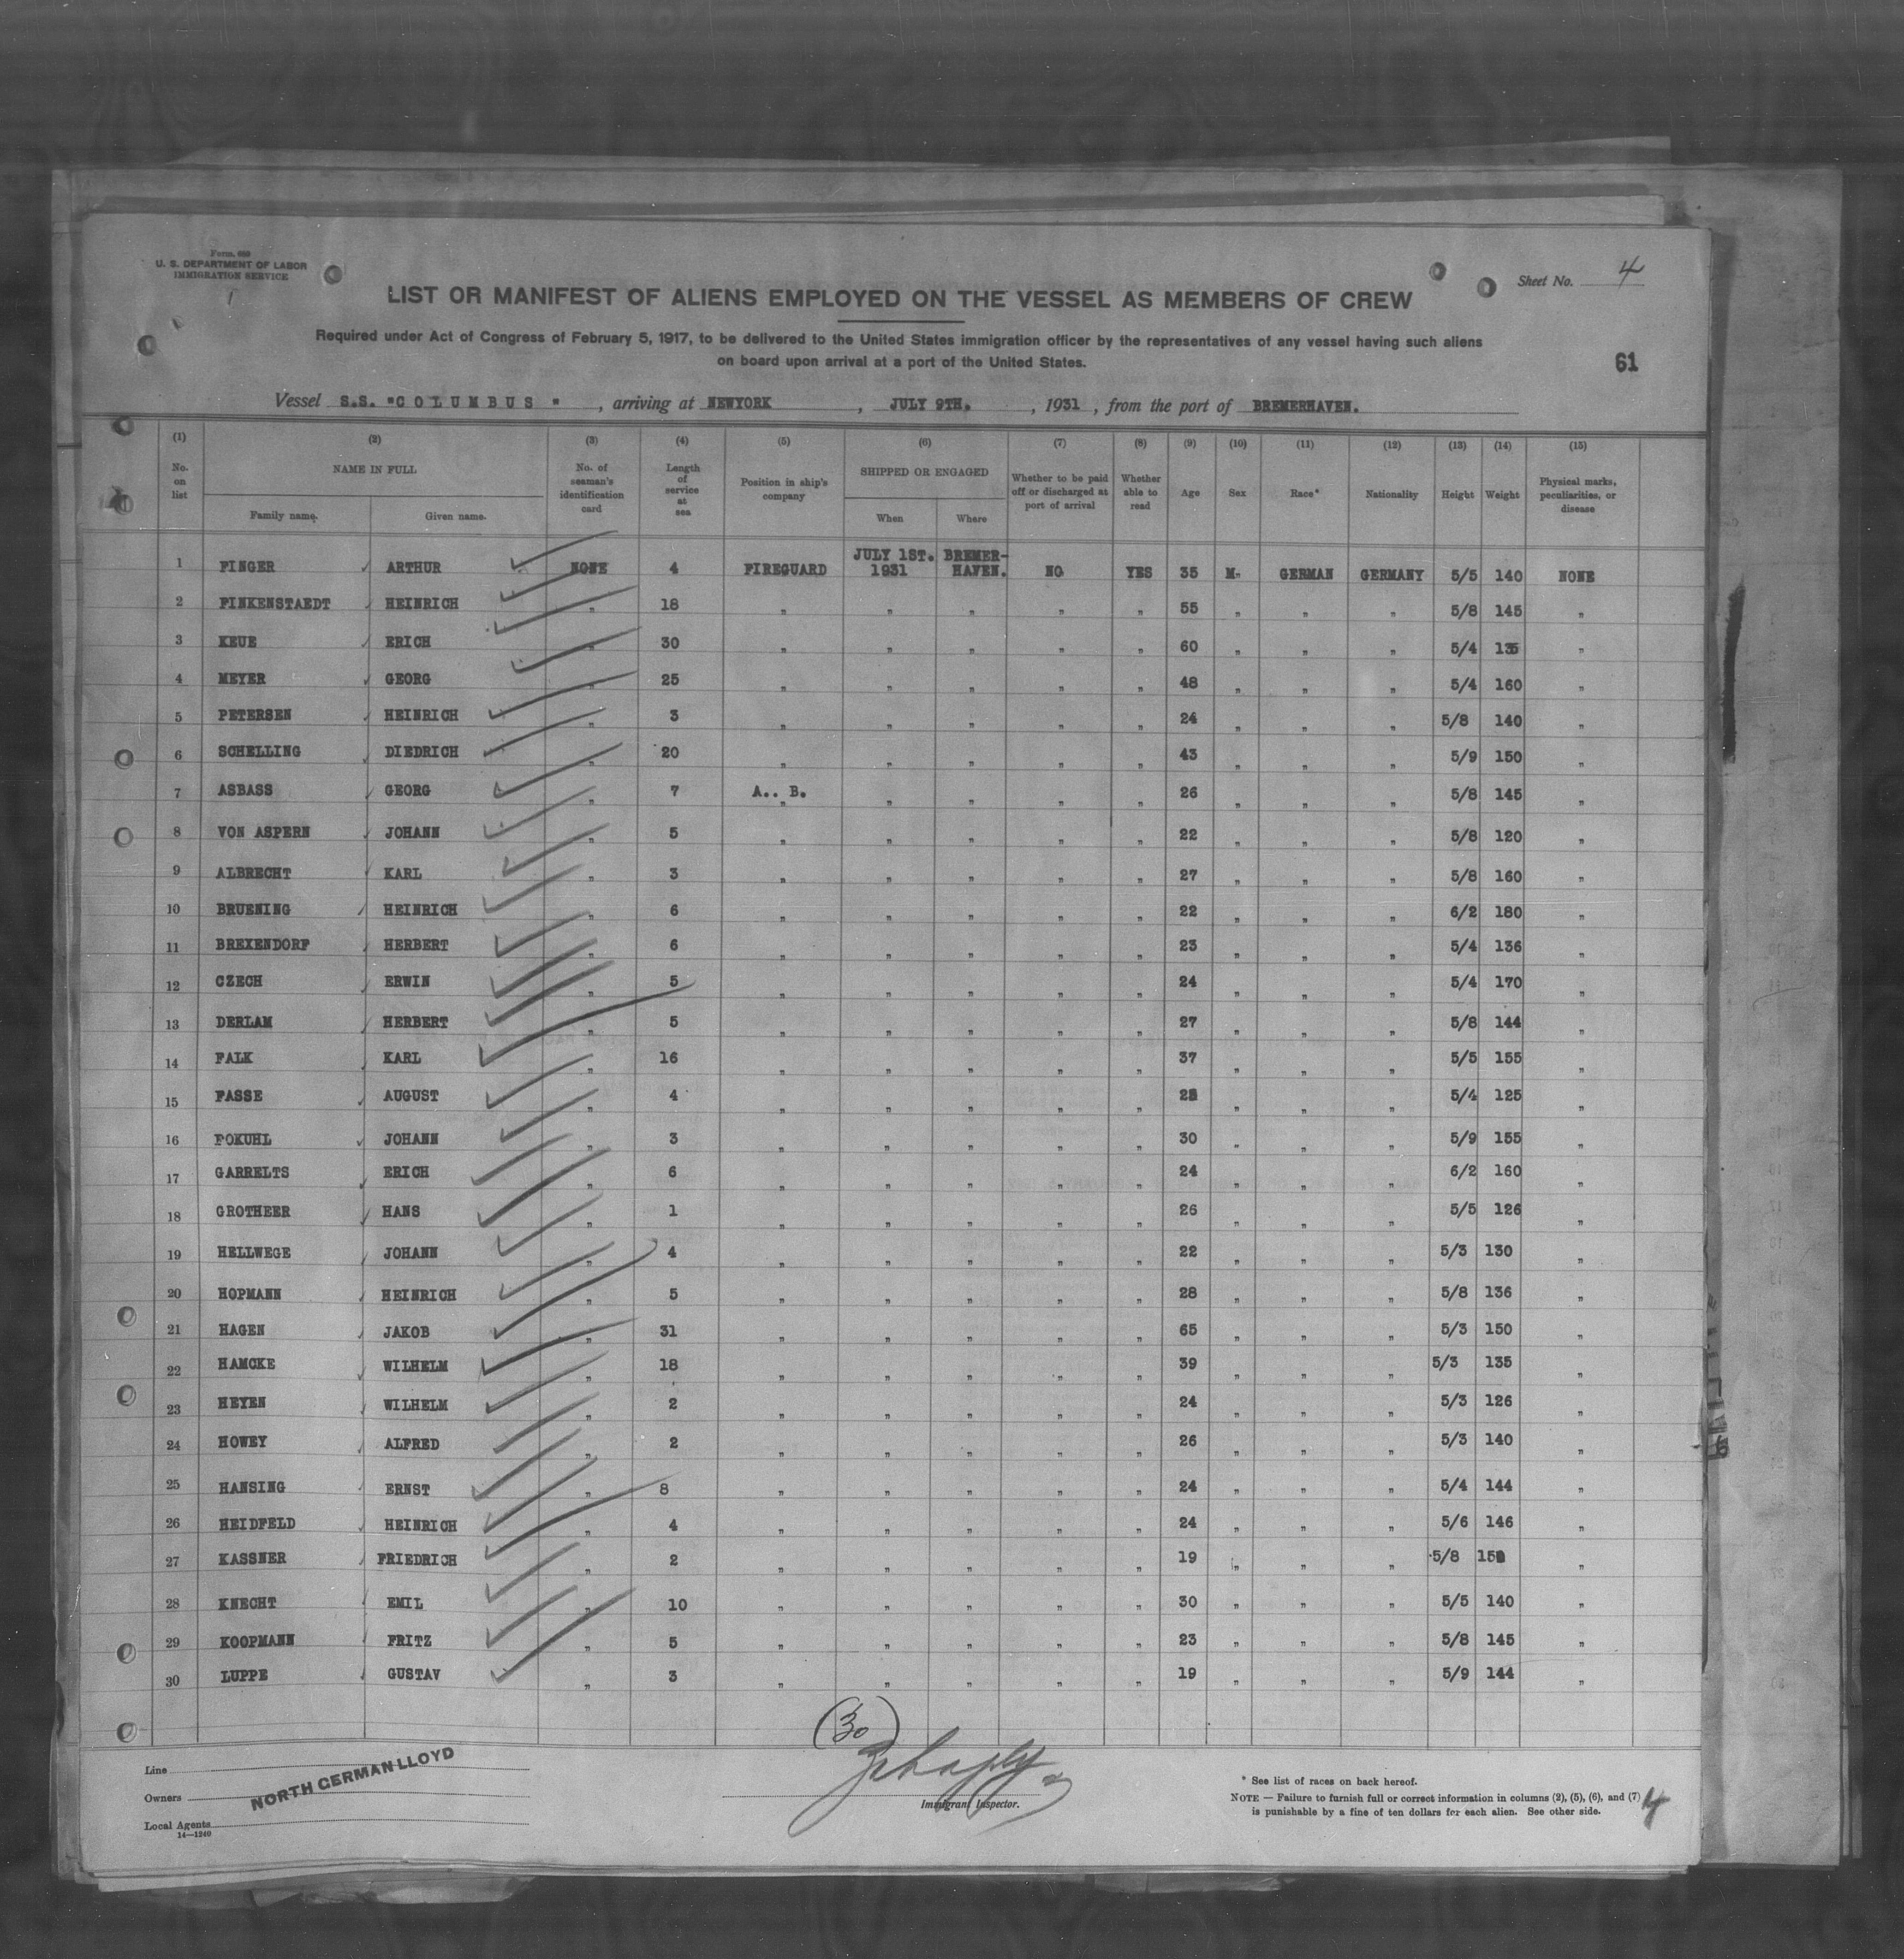 Form 689
U. S. DEPARTMENT OF LABOR
IMMIGRATION SERVICE
Sheet No. 4
LIST OR MANIFEST OF ALIENS EMPLOYED ON THE VESSEL AS MEMBERS OF CREW
Required under Act of Congress of February 5, 1917, to be delivered to the United States immigration officer by the representatives of any vessel having such aliens
on board upon arrival at a port of the United States.
61
Vessel S.S. "COLUMBUS", arriving at NEWYORK, JULY 9TH., 1931, from the port of BREMERHAVEN.
(1) (2) (3) (4) (5) (6) (7) (8) (9) (10) (11) (12) (13) (14) (15)
No. on list NAME IN FULL Family name. Given name. No. of seaman's identification card Length of service at sea Position in ship's company SHIPPED OR ENGAGED When Where Whether to be paid off or discharged at port of arrival Whether able to read Age Sex Race* Nationality Height Weight Physical marks, peculiarities, or disease
1 FINGER ARTHUR NONE 4 FIREGUARD JULY 1ST. 1931 BREMER-HAVEN. NO YES 35 M- GERMAN GERMANY 5/5 140 NONE
2 FINKENSTAEDT HEINRICH " 18 " " " " " 55 " " " 5/8 145 "
3 KEUE ERICH " 30 " " " " " 60 " " " 5/4 135 "
4 MEYER GEORG " 25 " " " " " 48 " " " 5/4 160 "
5 PETERSEN HEINRICH " 3 " " " " " 24 " " " 5/8 140 "
6 SCHELLING DIEDRICH " 20 " " " " " 43 " " " 5/9 150 "
7 ASBASS GEORG " 7 A.. B. " " " " 26 " " " 5/8 145 "
8 VON ASPERN JOHANN " 5 " " " " " 22 " " " 5/8 120 "
9 ALBRECHT KARL " 3 " " " " " 27 " " " 5/8 160 "
10 BRUENING HEINRICH " 6 " " " " " 22 " " " 6/2 180 "
11 BREXENDORF HERBERT " 6 " " " " " 23 " " " 5/4 136 "
12 CZECH ERWIN " 5 " " " " " 24 " " " 5/4 170 "
13 DERLAM HERBERT " 5 " " " " " 27 " " " 5/8 144 "
14 FALK KARL " 16 " " " " " 37 " " " 5/5 155 "
15 FASSE AUGUST " 4 " " " " " " " " 5/4 125 "
16 FOKUHL JOHANN " 3 " " " " " 30 " " " 5/9 155 "
17 GARRELTS ERICH " 6 " " " " " 24 " " " 6/2 160 "
18 GROTHEER HANS " 1 " " " " " 26 " " " 5/5 126 "
19 HELLWEGE JOHANN " 4 " " " " " 22 " " " 5/3 130 "
20 HOPMANN HEINRICH " 5 " " " " " 28 " " " 5/8 136 "
21 HAGEN JAKOB " 31 " " " " " 65 " " " 5/3 150 "
22 HAMCKE WILHELM " 18 " " " " " 39 " " " 5/3 135 "
23 HEYEN WILHELM " 2 " " " " " 24 " " " 5/3 126 "
24 HOWEY ALFRED " 2 " " " " " 26 " " " 5/3 140 "
25 HANSING ERNST " 8 " " " " " 24 " " " 5/4 144 "
26 HEIDFELD HEINRICH " 4 " " " " " 24 " " " 5/6 146 "
27 KASSNER FRIEDRICH " 2 " " " " " 19 " " " 5/8 "
28 KNECHT EMIL " 10 " " " " " 30 " " " 5/5 140 "
29 KOOPMANN FRITZ " 5 " " " " " 23 " " " 5/8 145 "
30 LUPPE GUSTAV " 3 " " " " " 19 " " " 5/9 144 "
(30)
Line
Owners NORTH GERMAN LLOYD
Local Agents
14—1240
Immigrant Inspector.
* See list of races on back hereof.
NOTE — Failure to furnish full or correct information in columns (2), (5), (6), and (7)
is punishable by a fine of ten dollars for each alien. See other side.
4